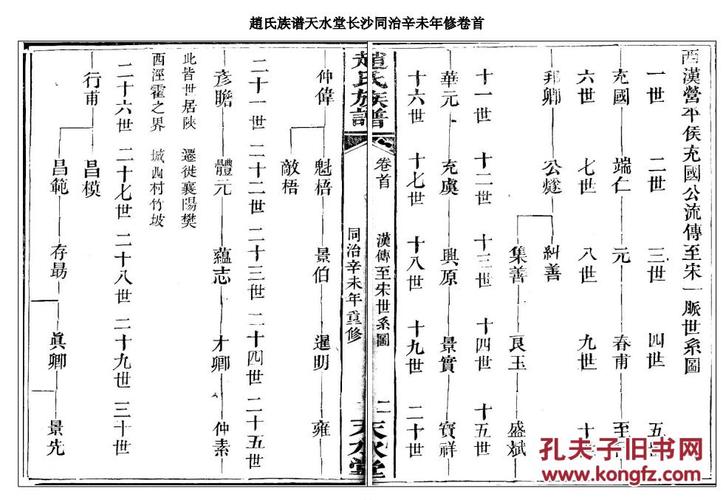 趙氏族谱天水堂长沙同治辛未年修卷首
西漢營平侯充國公流傳至宋一脈世系圖
一世 二世 三世 四世 五
充國 端仁 元 春甫 至
六世 七世 八世 九世 十
邦卿 公燧 糾善
集善 良玉 盛斌
十一世 十二世 十三世 十四世 十五世
華元 充虞 興原 景實 寶祥
十六世 十七世 十八世 十九世 二十世
趙氏族譜 卷首 漢傳至宋世系圖 二
同治辛未年重修 天水堂
仲偉 魁梧 景伯 暹明 雍
敵梧
二十一世 二十二世 二十三世 二十四世 二十五世
彥瞻 體元 蘊志 才卿 仲素
此皆世居陝 遷徙襄陽樊
西涇霍之界 城西村竹坡
二十六世 二十七世 二十八世 二十九世 三十世
行甫 昌模
昌範 存勗 眞卿 景先
孔夫子旧书网
www.kongfz.com